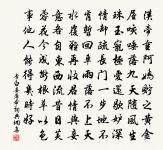 漢帝重阿嬌貯之黃金
屋咳唾落九天隨風生
珠玉寵極愛還歇妒深
情卻疏長門一步地不
肯暫回車雨落不上天
水覆難再收君情與妾
意各自東西流昔日芙
蓉花今成斷根草以色
事他人能得幾時好
李白妾薄命